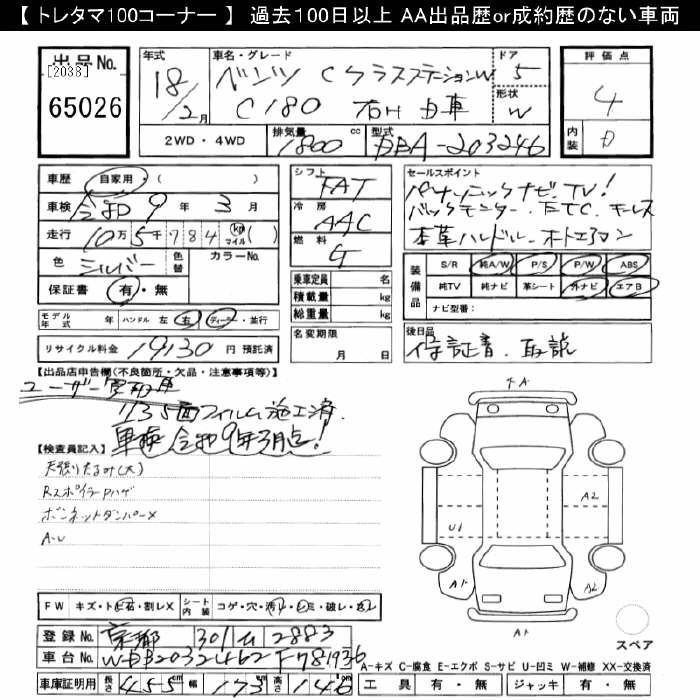 【 トレタマ100コーナー 】 過去100日以上 AA出品歴or成約歴のない車両
出品No.
[2038]
65026
年式 18/2月
車名・グレード ベンツ CクラスステーションW
C180 右H 自車
ドア 5
形状 W
評価点 4
内装 D
2WD・4WD 排気量 1800 cc 型式 DBA-203246
車歴 自家用 ( )
車検 令和 9 年 3 月
走行 10万 5千 784 km マイル ( )
色 シルバー 色替 カラーNo.
保証書 有・無
シフト FAT
冷房 AAC
燃料 G
乗車定員 名
積載量 kg
総重量 kg
セールスポイント
パナソニックナビ.TV!
バックモニター.ETC.キーレス
本革ハンドル.オートエアコン
装備品 S/R 純A/W P/S P/W ABS
純TV 純ナビ 革シート 外ナビ エアB
ナビ型番:
モデル年式 年 ハンドル 左 右 ディーラー・並行
リサイクル料金 19130 円 預託済
名変期限 月 日
後日品
保証書.取説
【出品店申告欄(不良箇所・欠品・注意事項等)】
ユーザー買取車
リヤ5面フィルム施工済.
車検 令和9年3月迄!
【検査員記入】
天張りたるみ(大)
Rスポイラー Pハゲ
ボンネットダンパー×
A・U
FA
A2
U1
A1
A2
A1
スペア
FW キズ・トビ石・割レX シート内装 コゲ・穴・汚レ・シミ・破レ・
登録No. 京都 301 ム 2883
車台No. WDB2032462F781936
A-キズ C-腐食 E-エクボ S-サビ U-凹ミ W-補修 XX-交換済
車庫証明用 長さ 455cm 幅 173cm 高さ 146cm 工具 有・無 ジャッキ 有・無